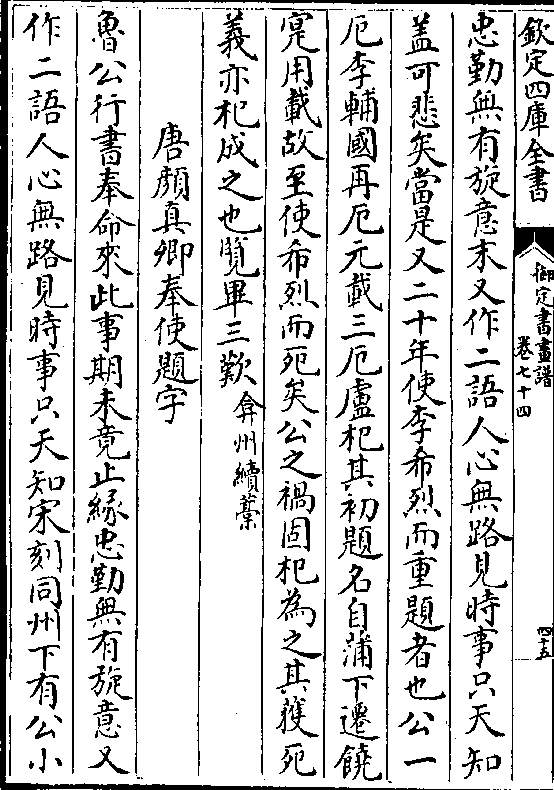 欽定四庫全書
御定書畫譜
卷七十四
四十五
忠勤無有旋意末又作二語人心無路見時事只天知
盖可悲矣當是又二十年使李希烈而重題者也公一
厄李輔國再厄元載三厄盧杞其初題名自蒲下遷饒
寔用載故至使希烈而死矣公之禍固杞為之其獲死
義亦杞成之也覽畢三歎弇州續藁
唐顏真卿奉使題字
魯公行書奉命來此事期未竟止緣忠勤無有旋意又
作二語人心無路見時事只天知宋刻同州下有公小